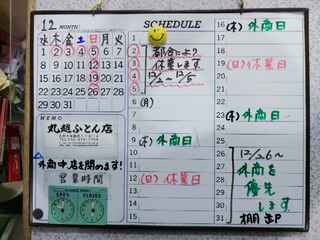 12 MONTH
水 木 金 土 日 月 火
1 2 3 4 5 6 7
8 9 10 11 12 13 14
15 16 17 18 19 20 21
22 23 24 25 26 27 28
29 30 31
MEMO
丸越ふとん店
外商中店を閉めます!
営業時間
OPEN CLOSED
SCHEDULE
1
2 都合により
3 休業します
4 12/2~12/5
5
6 (月)
7
8
9 (木) 外商日
10
11
12 (日) 休業日
13
14
15
16 (木) 外商日
17
18
19 (日) 休業日
20
21
22
23 (木) 外商日
24
25
26 12/26~
27 外商を
28
29 優先
30 します
31 棚卸